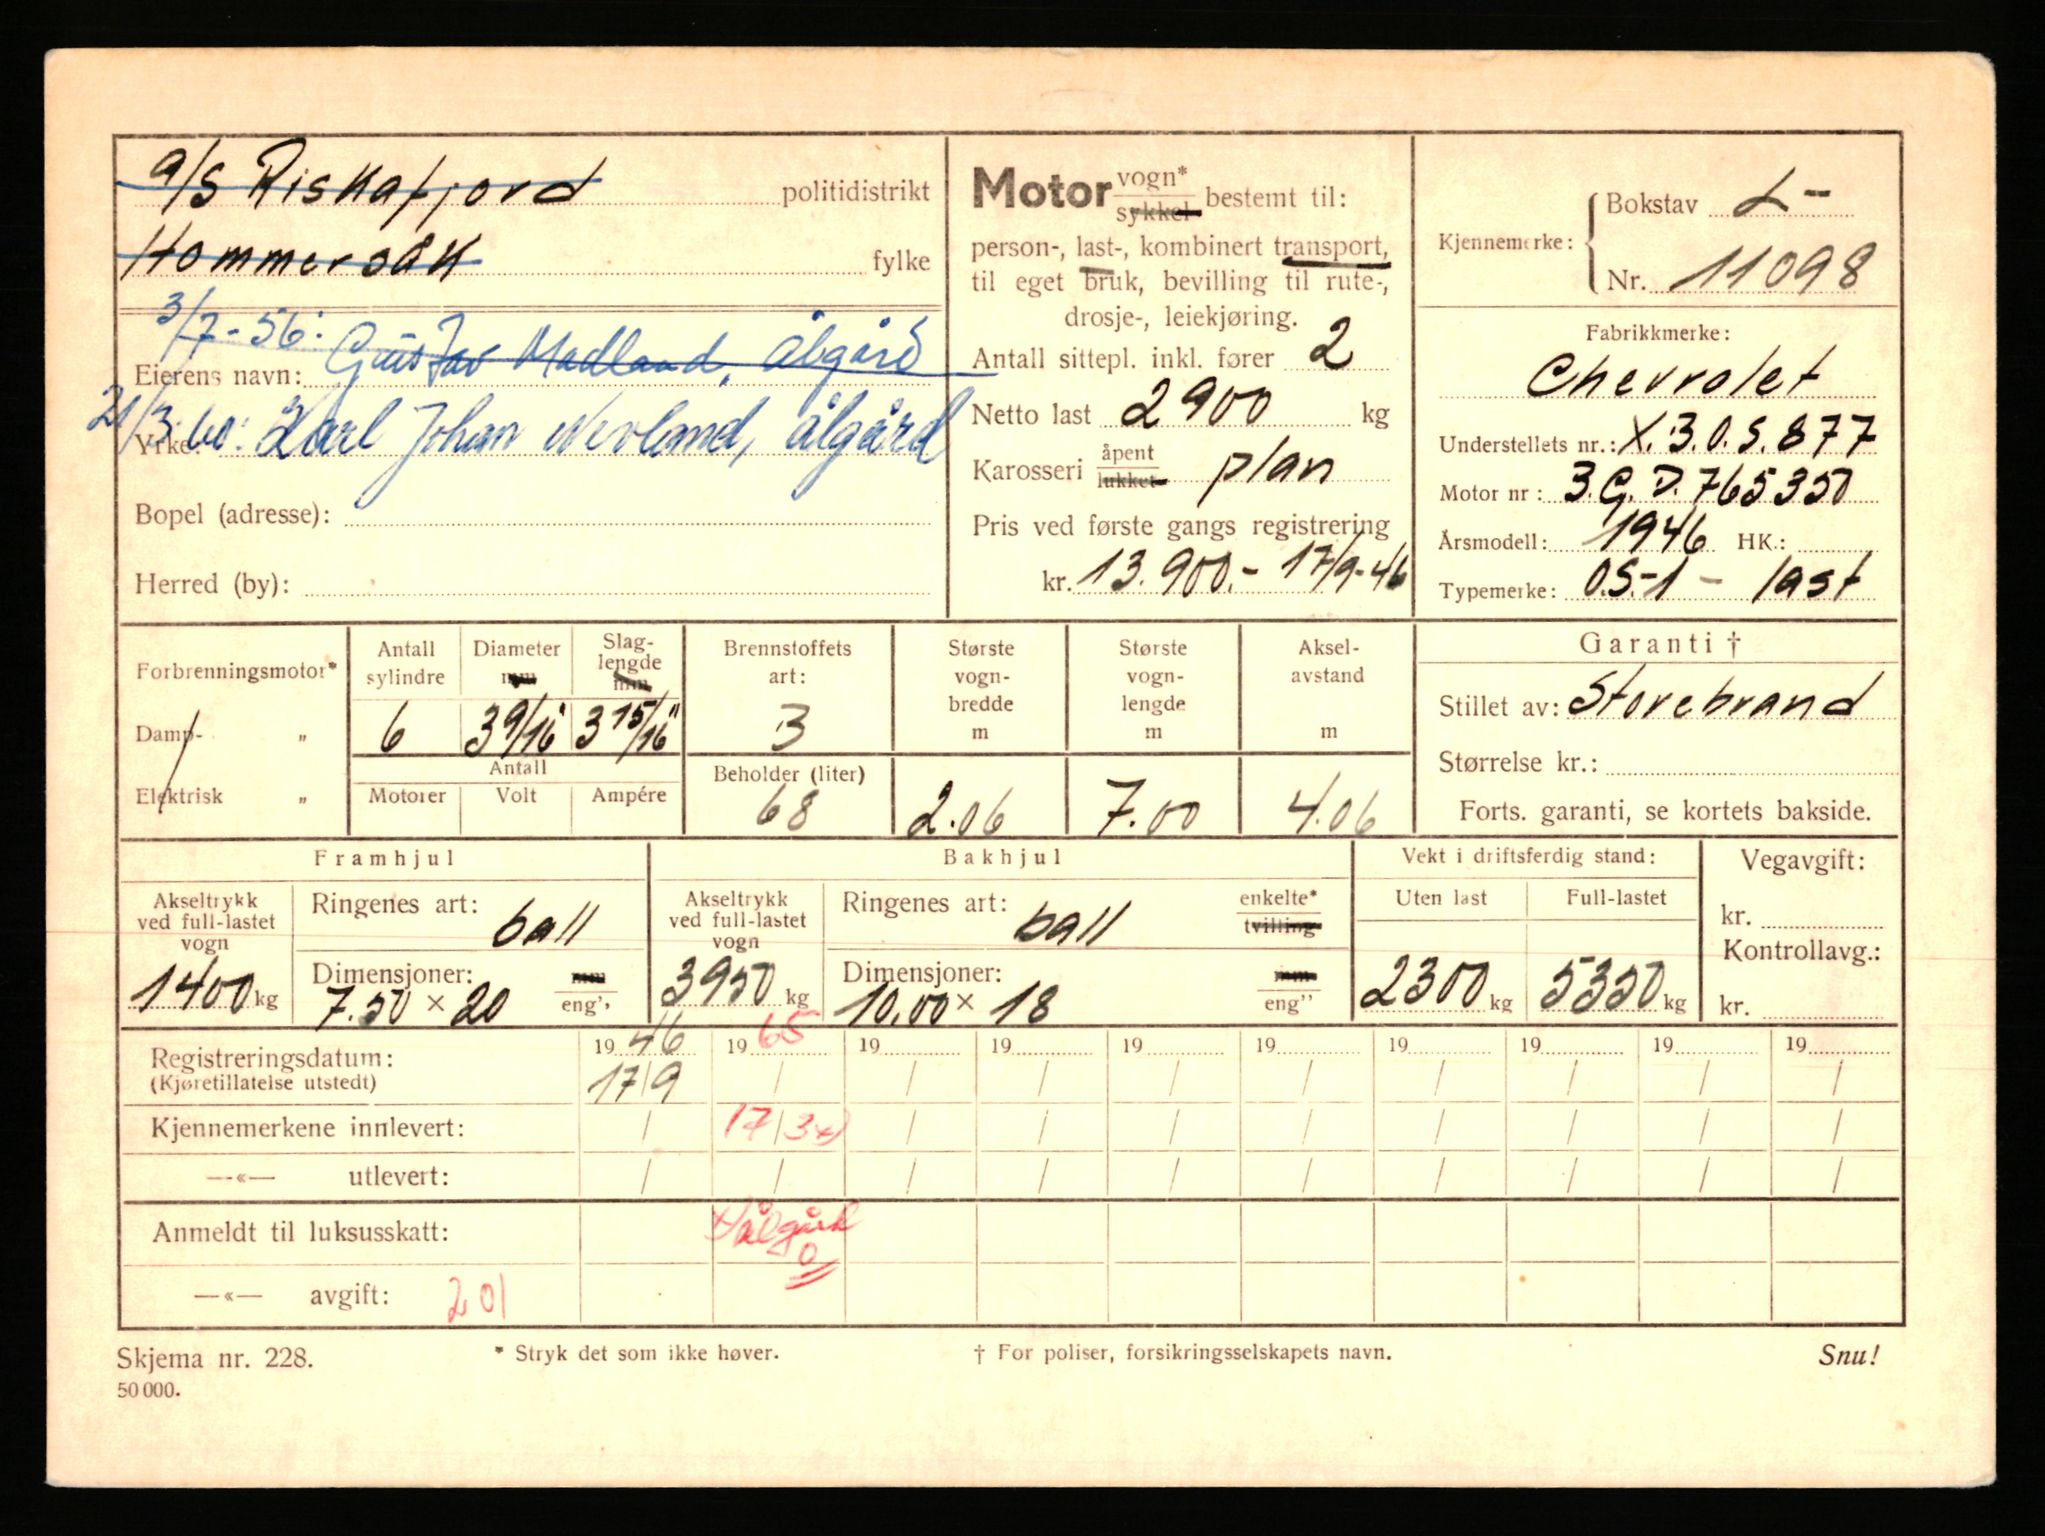 a/s Riskafjord politidistrikt
Hommersåk fylke
3/7-56: Gustav Madland, Ålgård
Eierens navn:
21/3.60: Karl Johan Nevland, Ålgård
Yrke:
Bopel (adresse):
Herred (by):
Motor vogn* sykkel bestemt til:
person-, last-, kombinert transport,
til eget bruk, bevilling til rute-,
drosje-, leiekjøring.
Antall sittepl. inkl. fører 2
Netto last 2900 kg
Karosseri åpent lukket plan
Pris ved første gangs registrering
kr. 13.900.- 17/9-46
Kjennemerke: Bokstav L-
Nr. 11098
Fabrikkmerke:
Chevrolet
Understellets nr.: X.3.O.S.877
Motor nr: 3.G.D.765350
Årsmodell: 1946 HK.:
Typemerke: O.S.-1 - last
Forbrenningsmotor*
Damp- "
Elektrisk "
Antall sylindre
6
Diameter mm
3 9/16"
Slag-lengde mm
3 15/16"
Antall
Motorer Volt Ampére
Brennstoffets art:
3
Beholder (liter)
68
Største vogn-bredde m
2.06
Største vogn-lengde m
7.00
Aksel-avstand m
4.06
Garanti †
Stillet av: Storebrand
Størrelse kr.:
Forts. garanti, se kortets bakside.
Framhjul
Akseltrykk ved full-lastet vogn
1400 kg
Ringenes art: ball
Dimensjoner: mm
7.50 × 20 eng''
Bakhjul
Akseltrykk ved full-lastet vogn
3950 kg
Ringenes art: ball enkelte* tvilling
Dimensjoner: mm
10.00 × 18 eng''
Vekt i driftsferdig stand:
Uten last Full-lastet
2300 kg 5350 kg
Vegavgift:
kr.
Kontrollavg.:
kr.
Registreringsdatum: 19 46 19 65 19 19 19 19 19 19 19 19
(Kjøretillatelse utstedt) 17/9 / / / / / / / / /
Kjennemerkene innlevert: / 17/3 x) / / / / / / / /
—«— utlevert: / / / / / / / / / /
Anmeldt til luksusskatt: x) Ålgård
0
—«— avgift: 201
Skjema nr. 228. * Stryk det som ikke høver. † For poliser, forsikringsselskapets navn. Snu!
50 000.